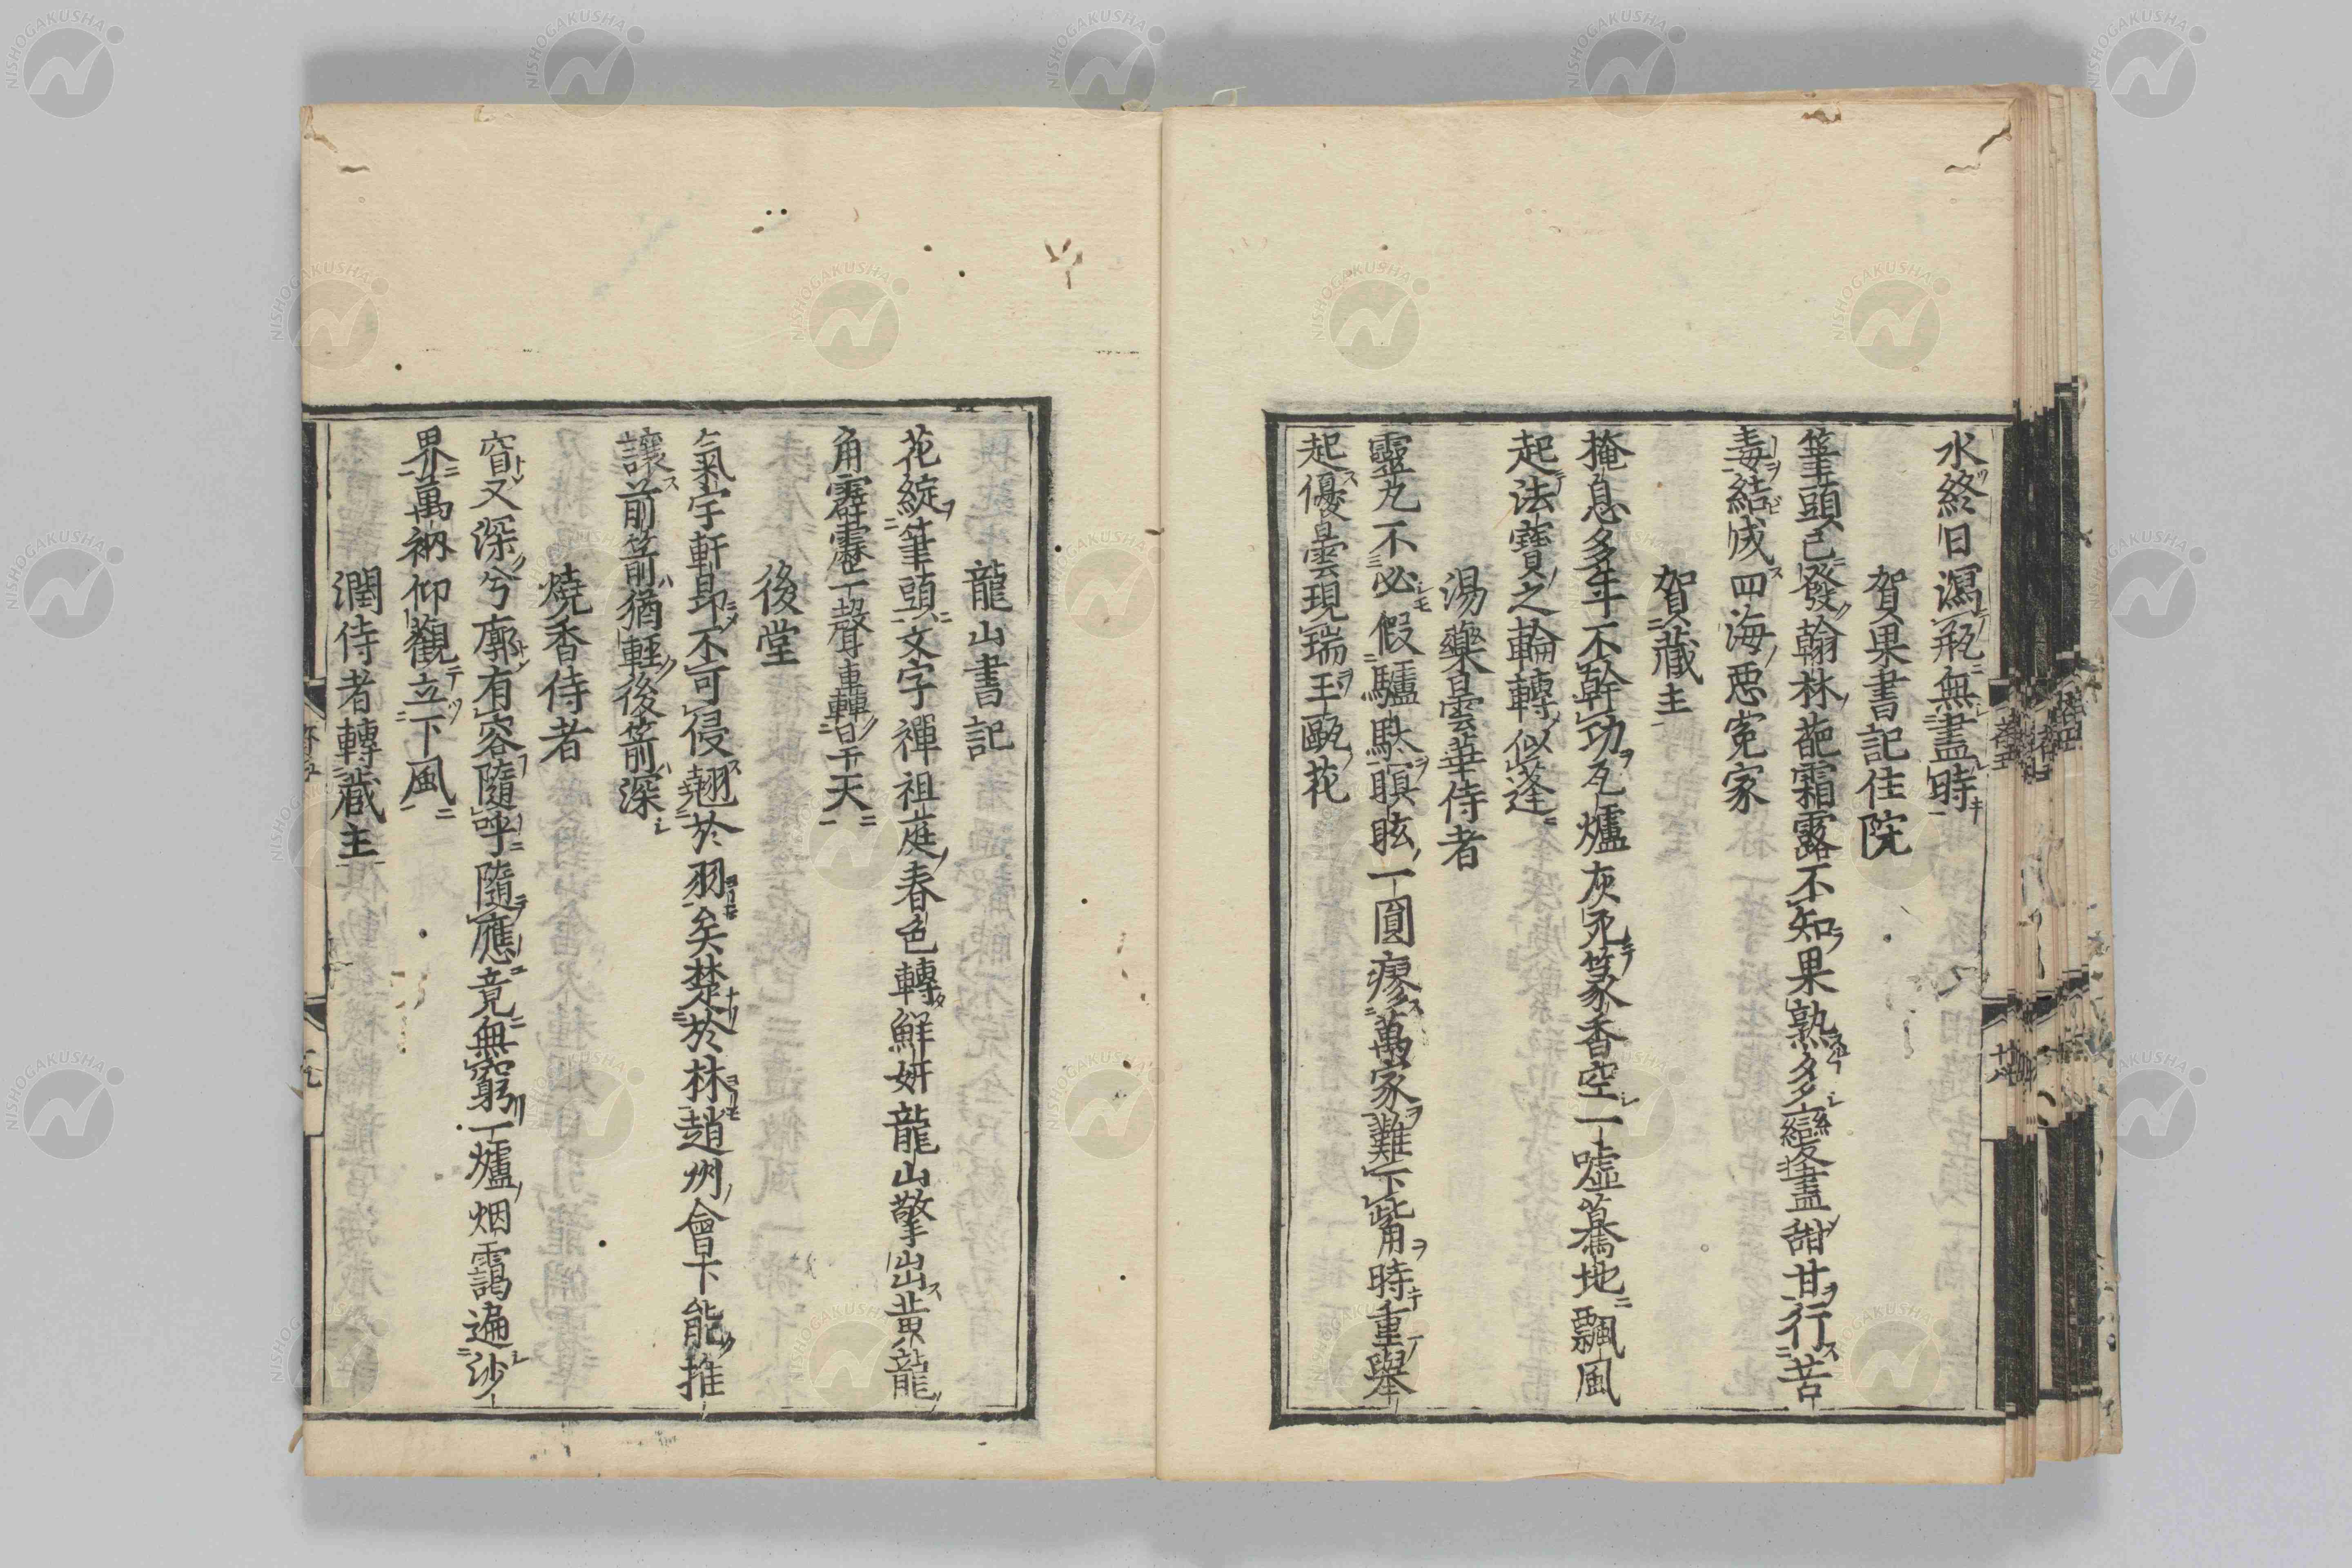 水終日瀉瓶無盡時
賀果書記住院
筆頭已發翰林葩霜露不知果熟多變盡甜甘行苦
毒結成四海惡寃家
賀藏主
掩息多年不幹功瓦爐灰死篆香空一嘘驀地飄風
起法寶之輪轉似蓬
湯藥曇華侍者
靈丸不必假驢馱瞑眩一圓瘳萬家難下觜時重舉
起優曇現瑞玉甌花
龍山書記
花綻筆頭文字禪祖庭春色轉鮮妍龍山擎出黄龍
角霹靂一聲轟旱天
後堂
氣宇軒昂不可侵翹於羽矣楚於林趙州會下能推
讓前箭猶輕後箭深
燒香侍者
窅又深兮廓有容隨呼隨應竟無窮一爐烟靄遍沙
界萬衲仰觀立下風
潤侍者轉藏主